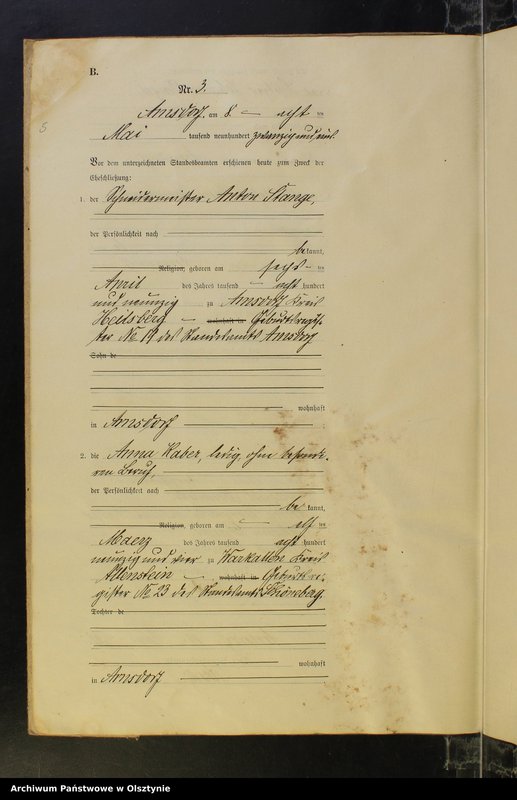 B.
Nr. 3.
5
Arnsdorf, am 8. acht ten
Mai tausend neunhundert zwanzig und eins.
Vor dem unterzeichneten Standesbeamten erschienen heute zum Zweck der
Eheschließung:
1. der Schneidermeister Anton Stange,
der Persönlichkeit nach
bekannt,
Religion, geboren am sechs ten
April des Jahres tausend acht hundert
und neunzig zu Arnsdorf Kreis
Heilsberg wohnhaft in Geburtsregis-
ter No 19 des Standesamts Arnsdorf
Sohn de
wohnhaft
in Arnsdorf
2. die Anna Kaber, ledig, ohne besonde-
ren Beruf,
der Persönlichkeit nach
be kannt,
Religion, geboren am elf ten
Maerz des Jahres tausend acht hundert
neunzig und vier zu Warkallen Kreis
Allenstein wohnhaft in Geburtsre-
gister No 23 des Standesamts Schönberg
Tochter de
wohnhaft
in Arnsdorf
Archiwum Państwowe w Olsztynie